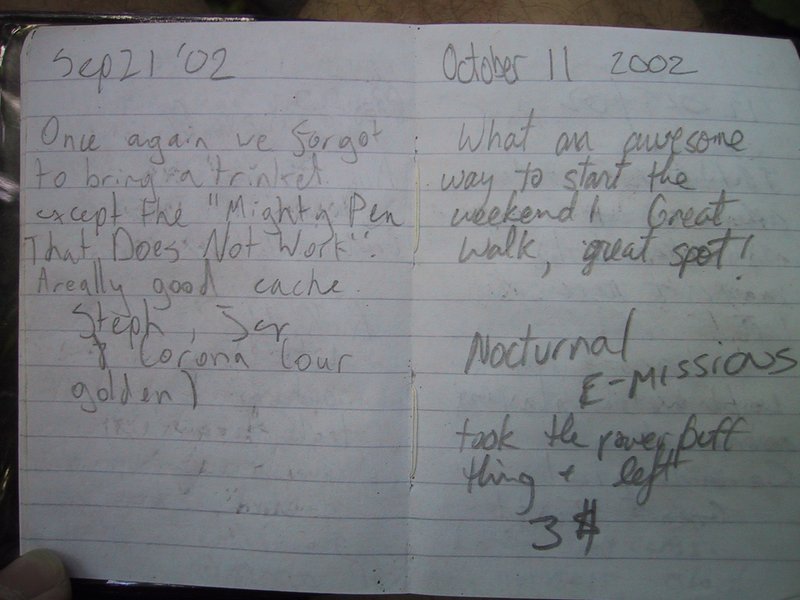 Sep 21 '02
Once again we forgot
to bring a trinket
except the "Mighty Pen
That Does Not Work".
A really good cache.
Steph, Jer
& Corona (our
golden)
October 11 2002
What an awesome
way to start the
weekend! Great
walk, great spot!
Nocturnal
E-Missions
took the power puff
thing + left
3 $